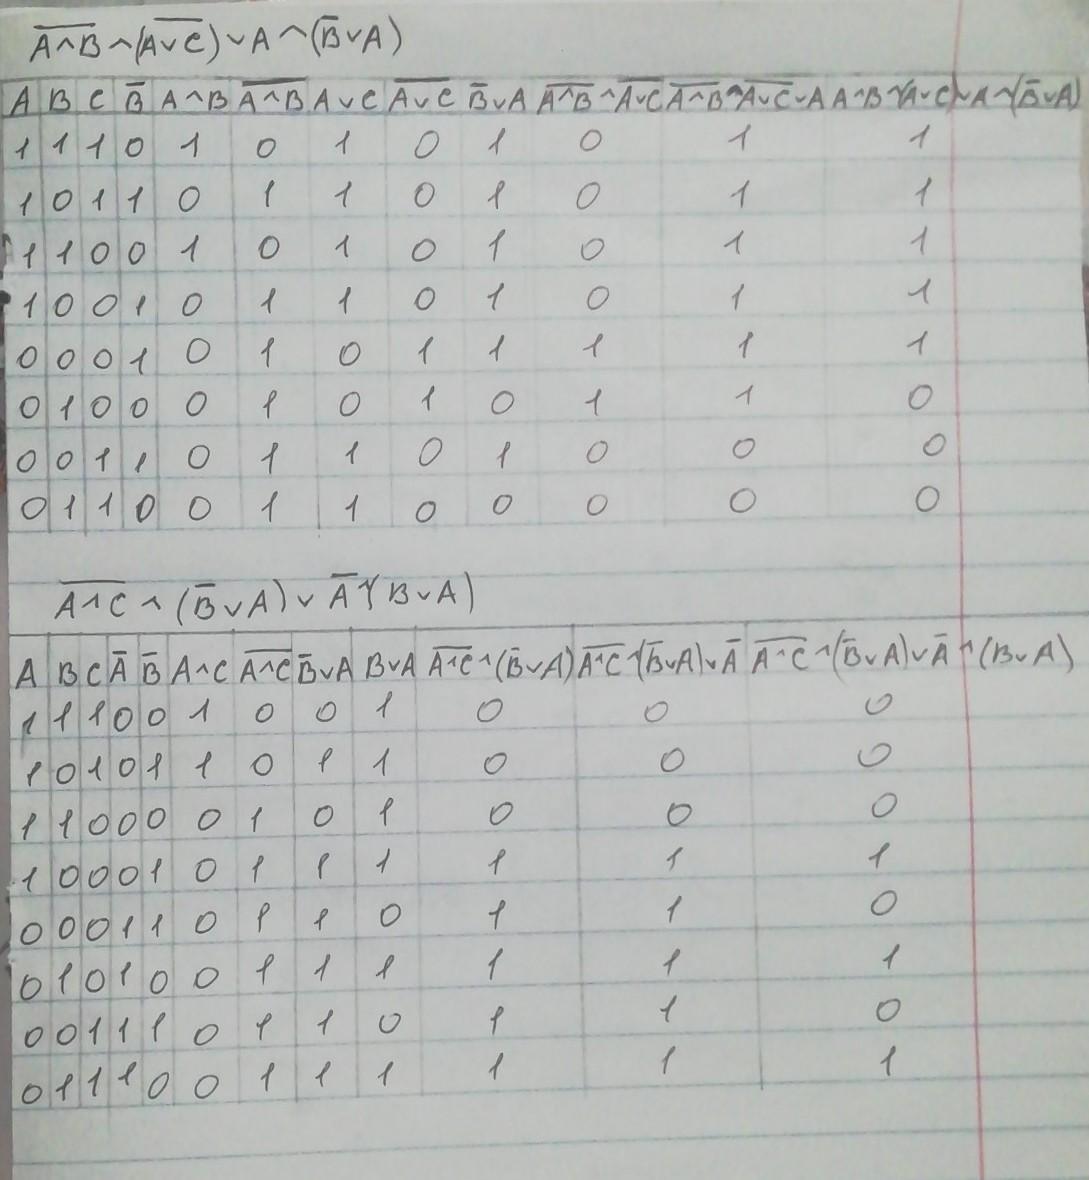 A̅^̅B̅ ^ (A̅v̅C̅) v A ^ (B̅ v A)
A B C B̅ A^B A̅^̅B̅ AvC A̅v̅C̅ B̅vA A̅^̅B̅^A̅v̅C̅ A̅^̅B̅^A̅v̅C̅vA A^B^(AvC)vA^(B̅vA)
1 1 1 0 1 0 1 0 1 0 1 1
1 0 1 1 0 1 1 0 1 0 1 1
1 1 0 0 1 0 1 0 1 0 1 1
1 0 0 1 0 1 1 0 1 0 1 1
0 0 0 1 0 1 0 1 1 1 1 1
0 1 0 0 0 1 0 1 0 1 1 0
0 0 1 1 0 1 1 0 1 0 0 0
0 1 1 0 0 1 1 0 0 0 0 0
A̅^̅C̅ ^ (B̅ v A) v A̅ ^ (B v A)
A B C A̅ B̅ A^C A̅^̅C̅ B̅vA BvA A̅^̅C̅^(B̅vA) A̅^̅C̅^(B̅vA)vA̅ A̅^̅C̅^(B̅vA)vA̅^(BvA)
1 1 1 0 0 1 0 0 1 0 0 0
1 0 1 0 1 1 0 1 1 0 0 0
1 1 0 0 0 0 1 0 1 0 0 0
1 0 0 0 1 0 1 1 1 1 1 1
0 0 0 1 1 0 1 1 0 1 1 0
0 1 0 1 0 0 1 1 1 1 1 1
0 0 1 1 1 0 1 1 0 1 1 0
0 1 1 1 0 0 1 1 1 1 1 1